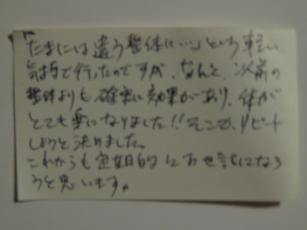 「たまには違う整体に…」という軽い
気持で行ったのですが、なんと、以前の
整体よりも確実に効果があり、体が
とても楽になりました!!そこで、リピート
しようと決めました。
これからも定期的にお世話になろ
うと思います。